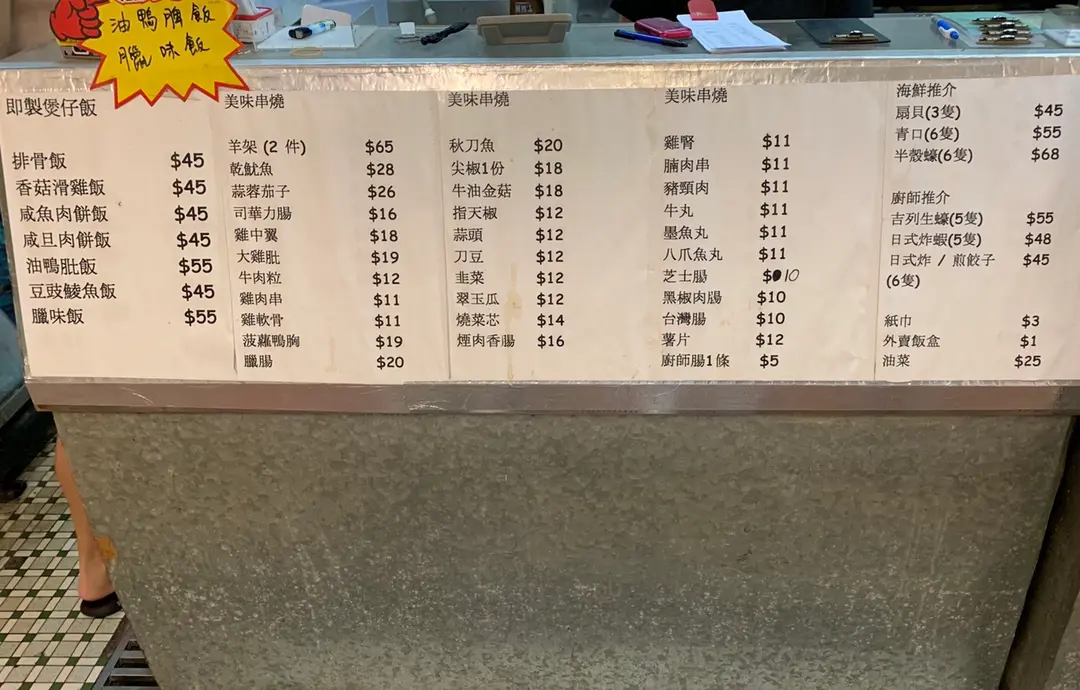 油鴨髀飯
臘味飯
即製煲仔飯
排骨飯 $45
香菇滑雞飯 $45
咸魚肉餅飯 $45
咸旦肉餅飯 $45
油鴨肶飯 $55
豆豉鯪魚飯 $45
臘味飯 $55
美味串燒
羊架 (2 件) $65
乾魷魚 $28
蒜蓉茄子 $26
司華力腸 $16
雞中翼 $18
大雞肶 $19
牛肉粒 $12
雞肉串 $11
雞軟骨 $11
菠蘿鴨胸 $19
臘腸 $20
美味串燒
秋刀魚 $20
尖椒1份 $18
牛油金菇 $18
指天椒 $12
蒜頭 $12
刀豆 $12
韭菜 $12
翠玉瓜 $12
燒菜芯 $14
煙肉香腸 $16
美味串燒
雞腎 $11
腩肉串 $11
豬頸肉 $11
牛丸 $11
墨魚丸 $11
八爪魚丸 $11
芝士腸 $10
黑椒肉腸 $10
台灣腸 $10
薯片 $12
廚師腸1條 $5
海鮮推介
扇貝(3隻) $45
青口(6隻) $55
半殼蠔(6隻) $68
廚師推介
吉列生蠔(5隻) $55
日式炸蝦(5隻) $48
日式炸 / 煎餃子 $45
(6隻)
紙巾 $3
外賣飯盒 $1
油菜 $25